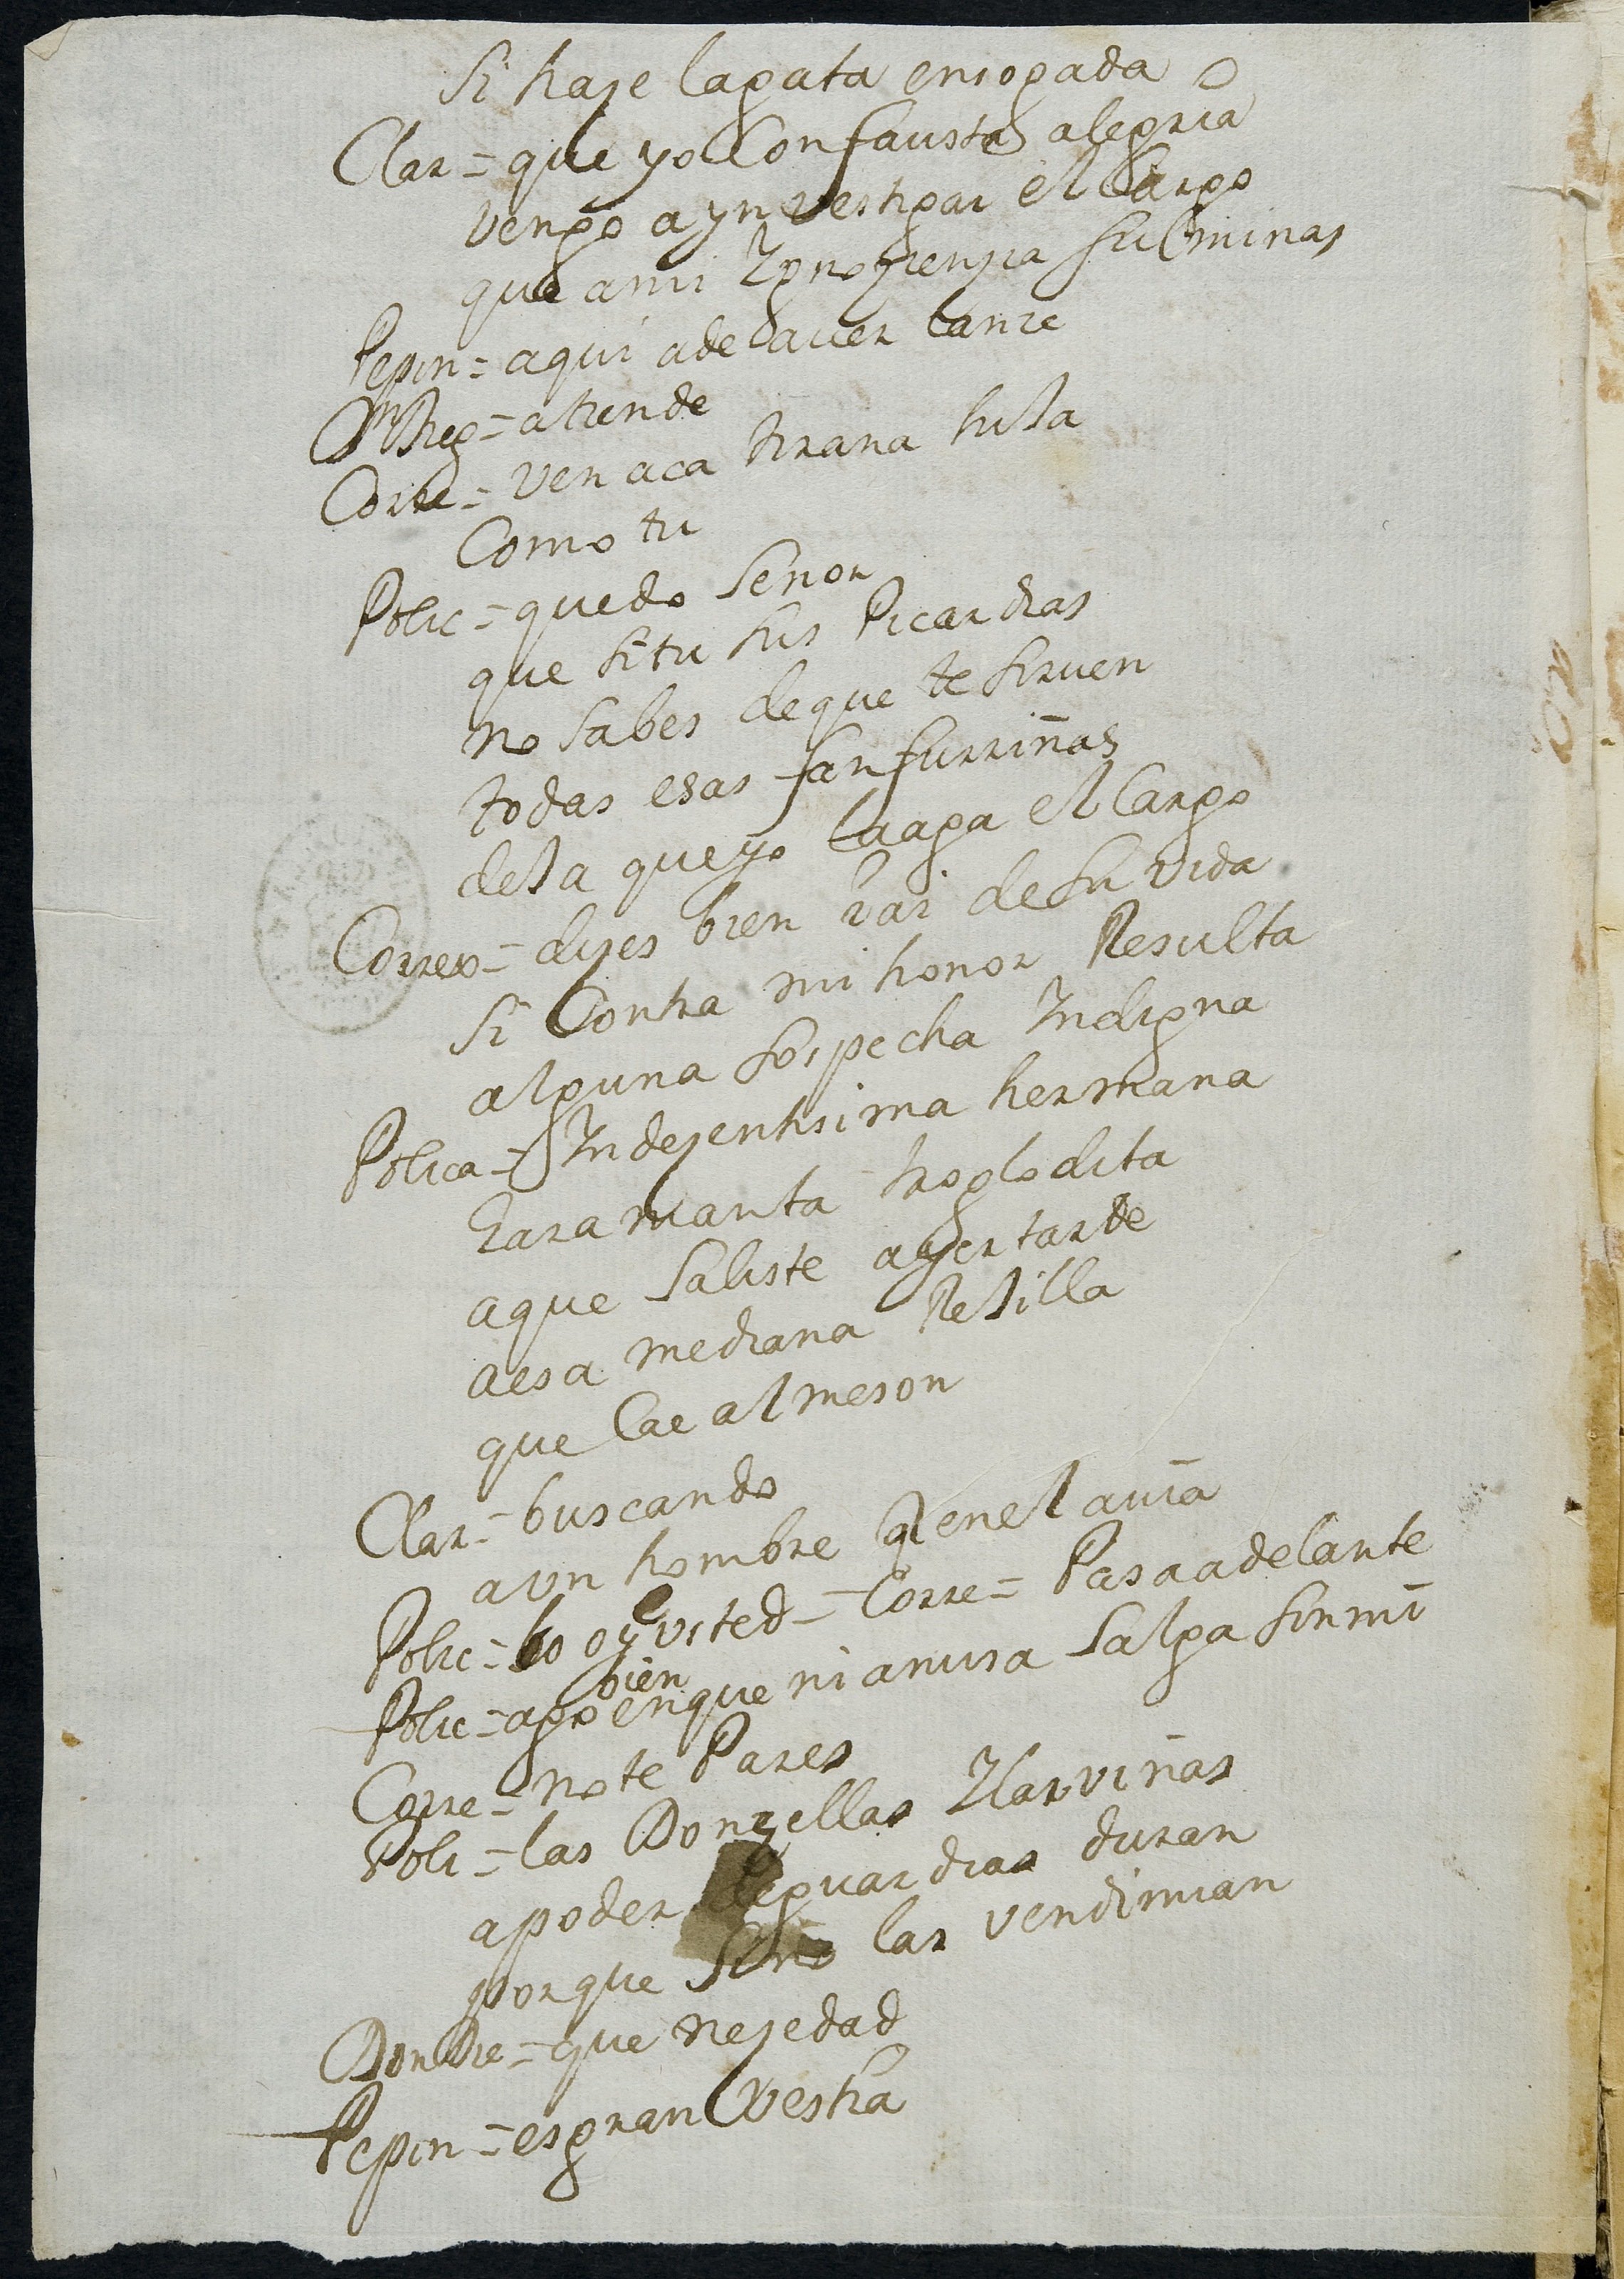 si haze lagata ensogada
Clar = que yo Con fausta alegria
vengo a ynvestigar el Cargo
que ami Ygnozenzia fulminas
Pepin = aqui adelaver lanze
Dn Dieg = atiende
Corre = ven aca tirana hija
Como tu
Polic = quedo señor
que si tu sus Picardias
no sabes deque te siruen
todas esas fanfurriñas
deja que yo laaga el Cargo
Correx = dizes bien vai de su vida
si Contra mi honor Resulta
alguna sospecha Indigna
Polica = Indezentisima hermana
garamanta troglodita
aque saliste ayer tarde
aesa mediana Rejilla
que Cae al meson
Clar = buscando
a vn hombre q enel avia
Polic = lo oye vsted = Corre = Pasaadelante
Polic = ago bien enque ni amisa salga sin mi
Corre = no te Pares
Poli = las Donzellas Ylas viñas
apoder deguardias duran
porque sino las vendimian
Don Die = que nezedad
Pepin = esgran vestia